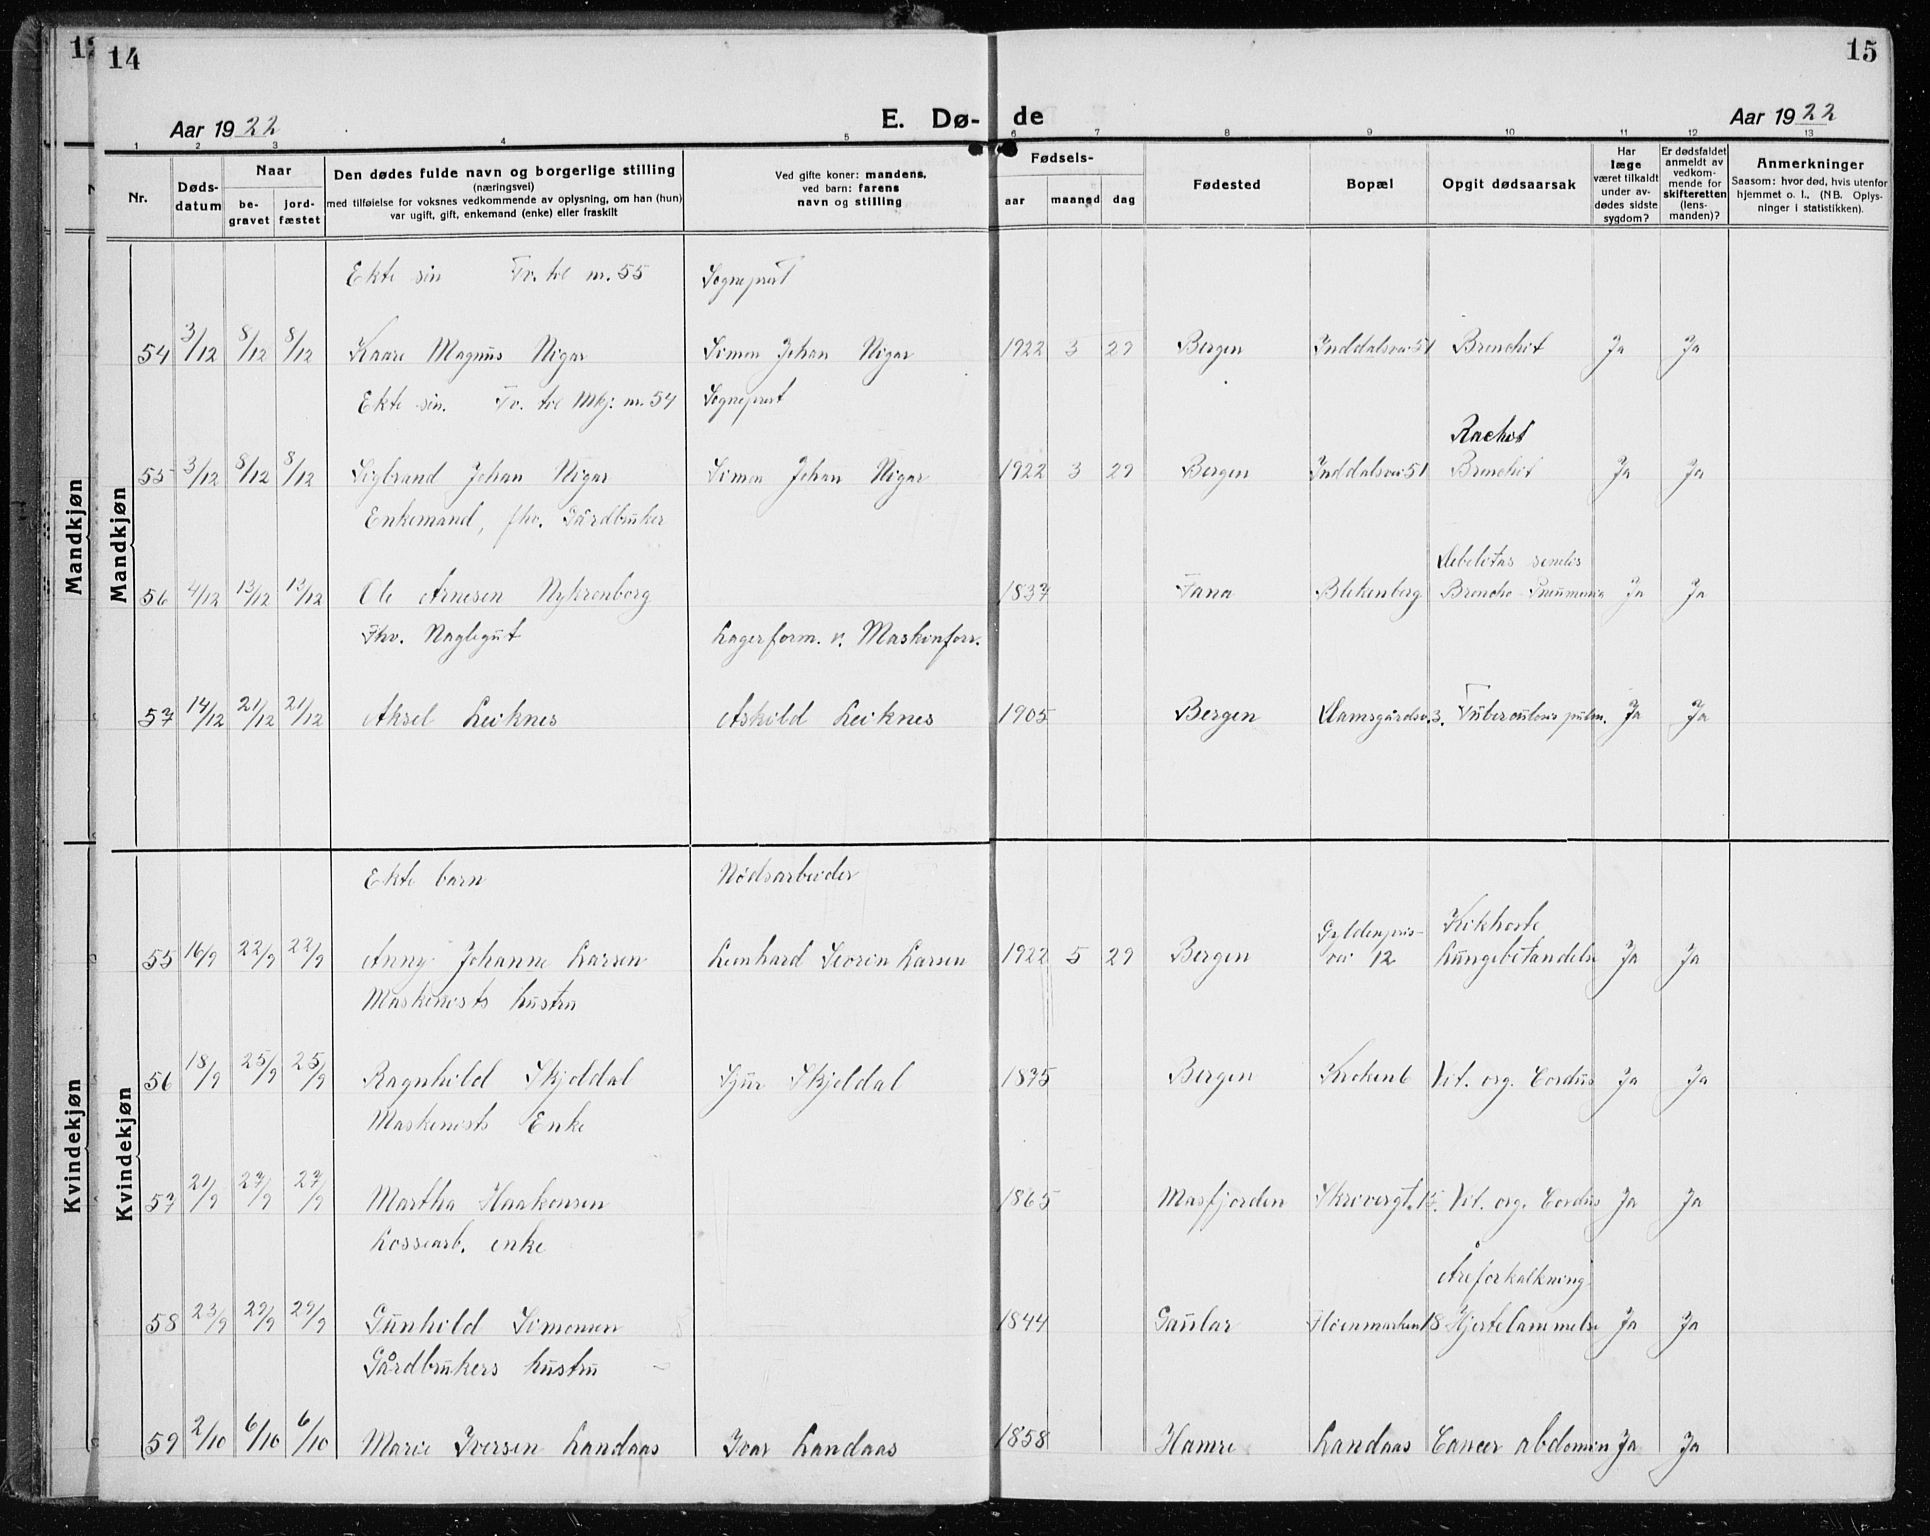 12
14
15
Aar 1922
E. Dø-
de
Aar 1922
1 2 3 4 5 6 7 8 9 10 11 12 13
Nr.
Døds-
datum
Naar
be-
gravet
jord-
fæstet
Den dødes fulde navn og borgerlige stilling
(næringsvei)
med tilføielse for voksnes vedkommende av oplysning, om han (hun)
var ugift, gift, enkemand (enke) eller fraskilt
Ved gifte koner: mandens,
ved barn: farens
navn og stilling
Fødsels-
aar maaned dag
Fødested
Bopæl
Opgit dødsaarsak
Har
læge
været tilkaldt
under av-
dødes sidste
sygdom?
Er dødsfaldet
anmeldt av
vedkom-
mende for
skifteretten
(lens-
manden)?
Anmerkninger
Saasom: hvor død, hvis utenfor
hjemmet o. l., (NB. Oplys-
ninger i statistikken).
Mandkjøn
Mandkjøn
Ekte sin Tv. til nr. 55 Sogneprest
54 3/12 8/12 8/12 Kaare Magnus Nigar Simon Johan Nigar 1922 3 29 Bergen Inddalsvei 51 Bronchit Ja Ja
Ekte sin. Tv. til Mkj: nr. 54 Sogneprest
Rachit
55 3/12 8/12 8/12 Sigbrand Johan Nigar Simon Johan Nigar 1922 3 29 Bergen Inddalsvei 51 Bronchit Ja Ja
Enkemand, fhv. Gårdbruker
Debelitas senilis
56 4/12 13/12 13/12 Ole Arnesen Nykronborg 1837 Fana Blekenberg Broncho-Pneumonia Ja Ja
Fhv. Naglegut Lagerform. v. Maskinforr.
57 14/12 21/12 21/12 Aksel Leiknes Askild Leiknes 1905 Bergen Damsgårdsv. 3. Tuberculosis pulm. Ja Ja
Kvindekjøn
Kvindekjøn
Ekte barn Nødsarbeider
Kikhoste
55 16/9 22/9 22/9 Anny Johanne Larsen Leonhard Severin Larsen 1922 5 29 Bergen Gyldenpris-
vei 12 Lungebetændelse Ja Ja
Maskinists hustru
56 18/9 25/9 25/9 Ragnhild Skjoldal Sjur Skjeldal 1875 Bergen Kroken 6 Vit. org. Cordus Ja Ja
Maskinists Enke
57 21/9 27/9 27/9 Martha Haakonsen 1865 Masfjorden Skrivergt. 15. Vit. org. Cordus Ja Ja
Lossearb. enke
Åreforkalkning
58 23/9 29/9 29/9 Gunhild Simonsen 1844 Gaular Fløenmarken 18 Hjertelammelse Ja Ja
Gårdbrukers hustru
59 2/10 6/10 6/10 Marie Iversen Landaas Ivar Landaas 1858 Hamre Landaas Cancer abdomin Ja Ja